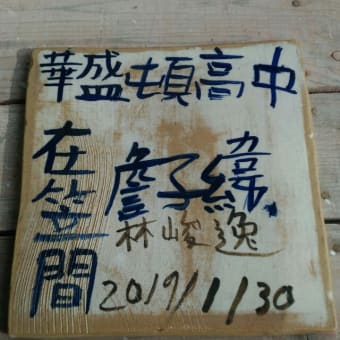 華盛頓高中
在笠間
詹子緯
林峻逸
2019/1/30